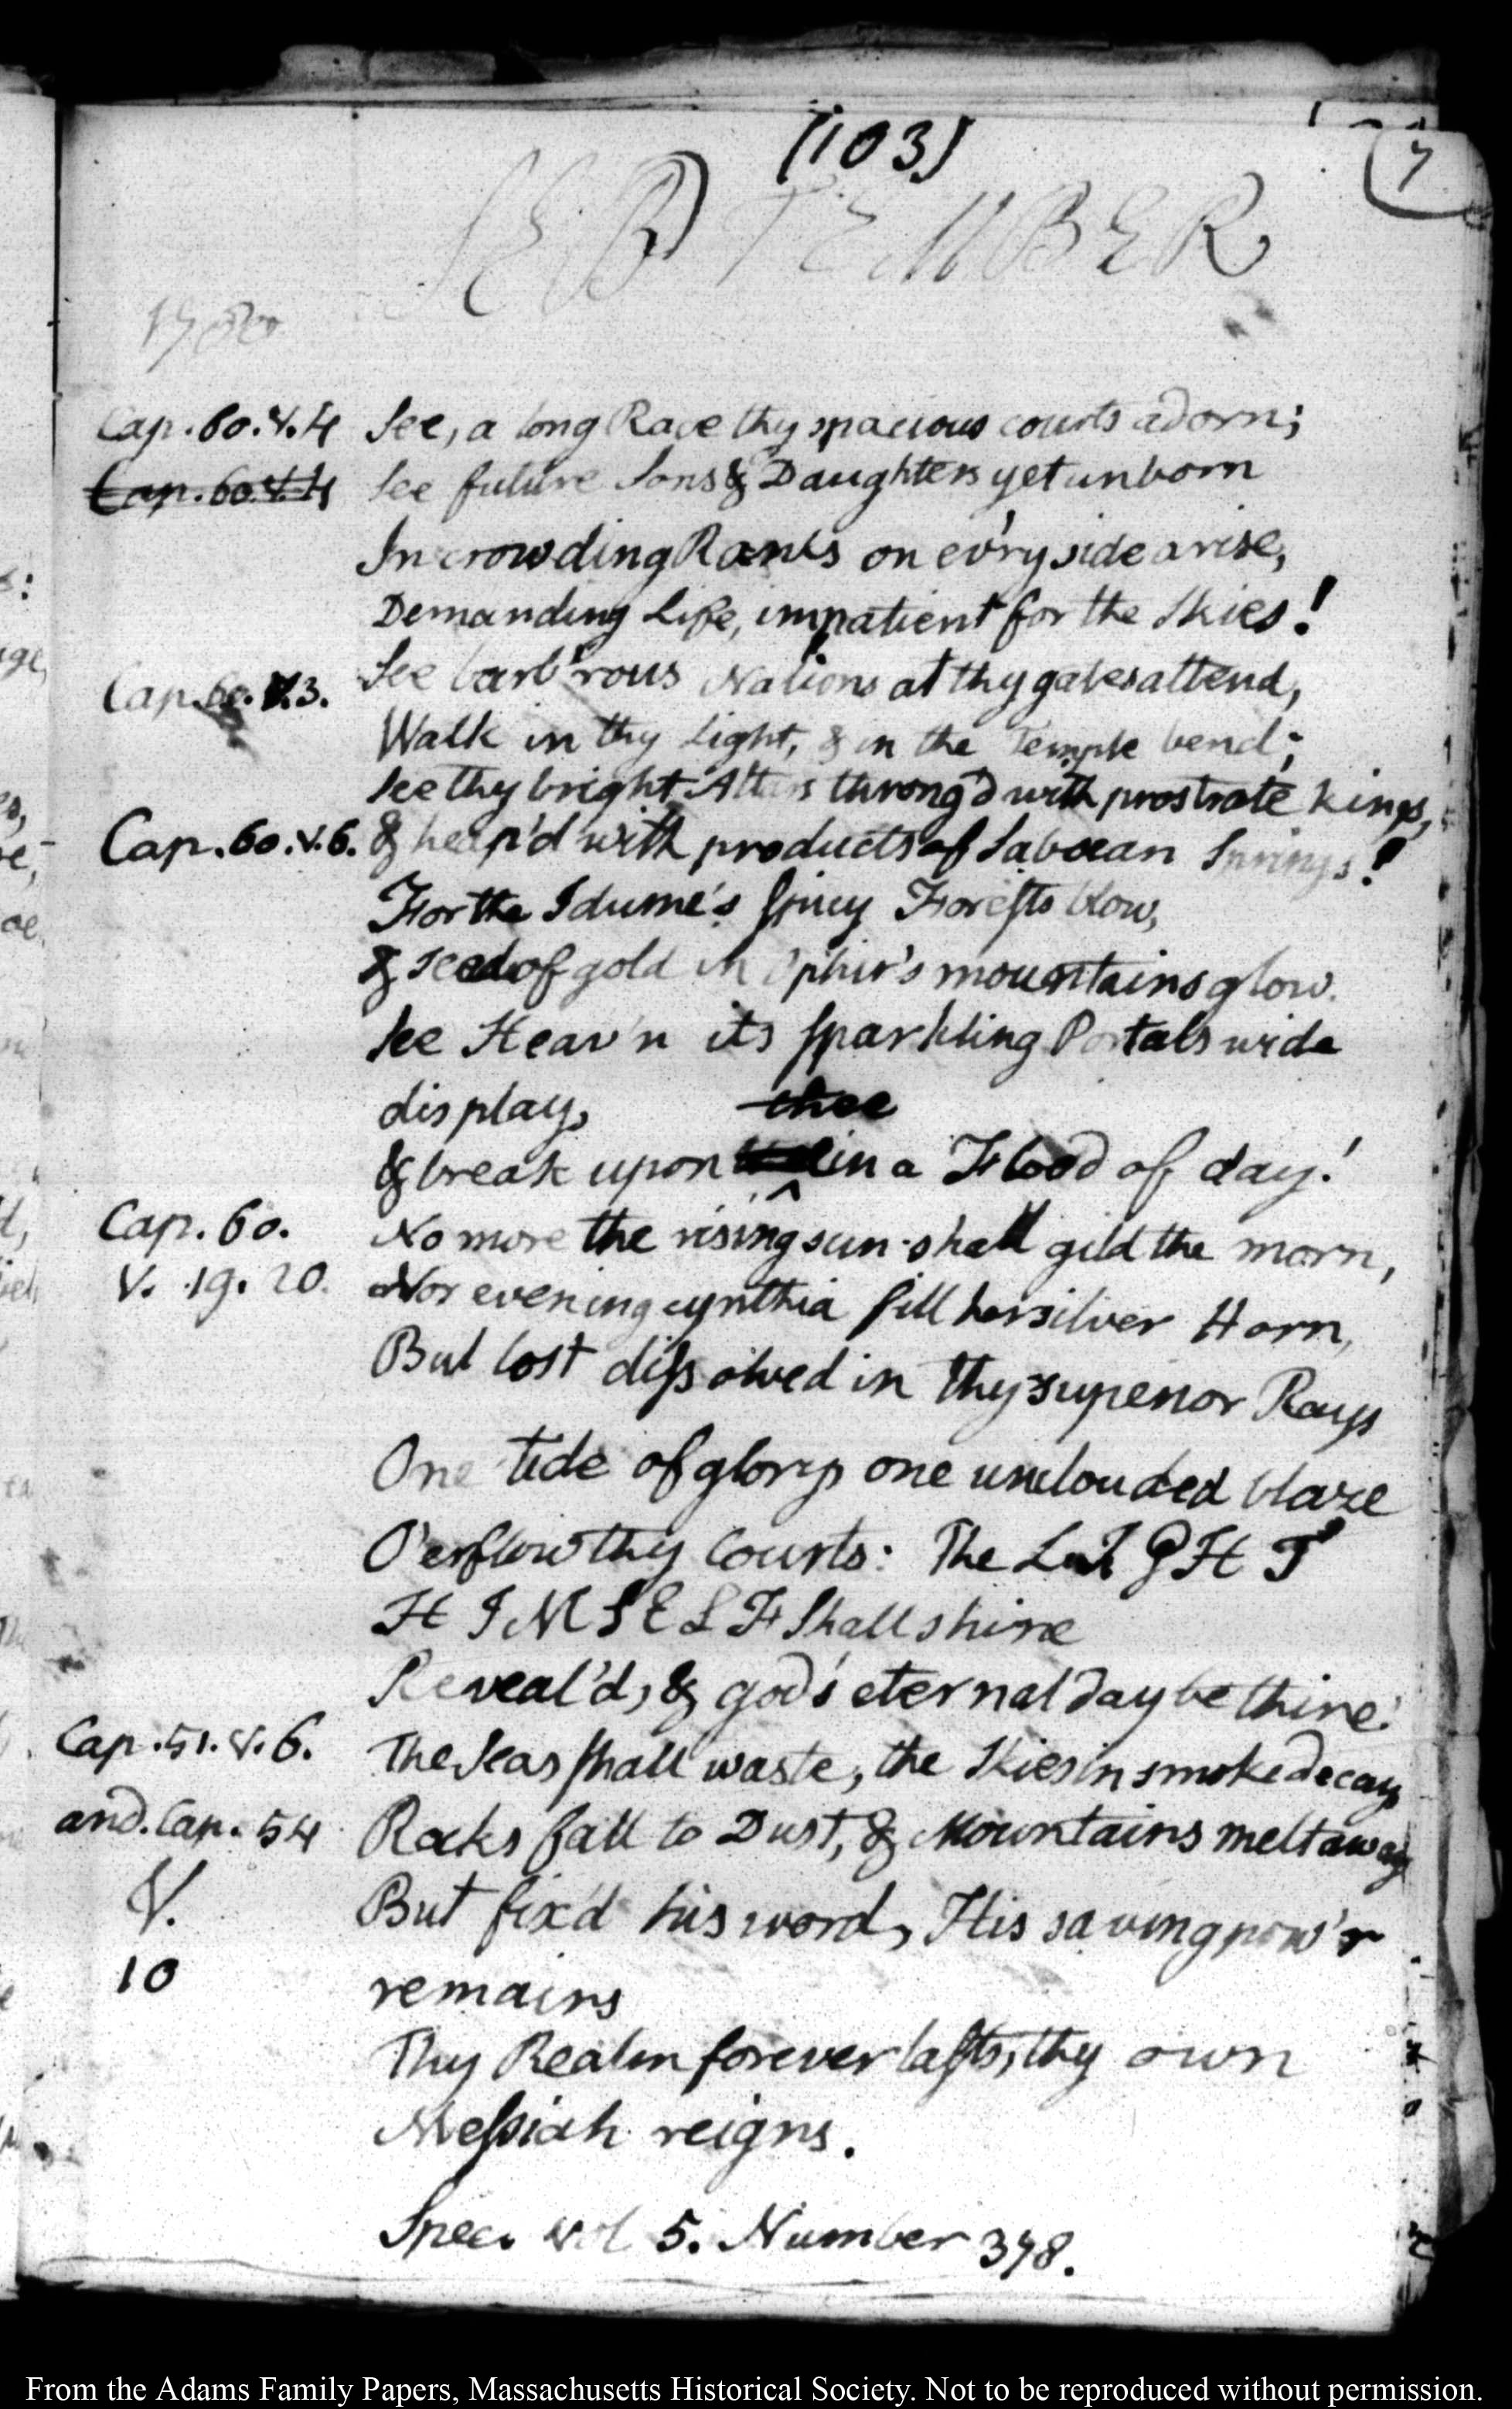 (103)
7
SEPTEMBER
1780
Cap. 60. V. 4 See, a long Race thy spacious courts adorn;
Cap. 60. V. 4 See future Sons & Daughters yet unborn
In crowding Ranks on ev'ry side arise,
Demanding Life, impatient for the Skies!
Cap. 60. V. 3. See barb'rous Nations at thy gates attend,
Walk in thy Light, & in the Temple bend;
See thy bright Altars throng'd with prostrate kings,
Cap. 60. v. 6. & heap'd with products of Sabœan Springs!
For the Idume's spicy Forests blow,
& seeds of gold in Ophir's mountains glow.
See Heav'n its sparkling Portals wide
display,
thee
& break upon in a Flood of day!
Cap. 60. No more the rising sun shall gild the morn,
V. 19. 20. Nor evening cynthia fill her silver Horn,
But lost dissolved in thy superior Rays
One tide of glory, one unclouded blaze
O'erflow thy Courts: The LIGHT
HIMSELF Shall shine
Reveal'd, & god's eternal day be thine!
Cap. 51. V. 6. The Seas shall waste, the Skies in smoke decay
and. Cap. 54 Rocks fall to Dust, & Mountains melt away
V. But fix'd his word, His saving pow'r
10 remains
Thy Realm forever lasts, thy own
Messiah reigns.
Spec. vol 5. Number 378.
From the Adams Family Papers, Massachusetts Historical Society. Not to be reproduced without permission.